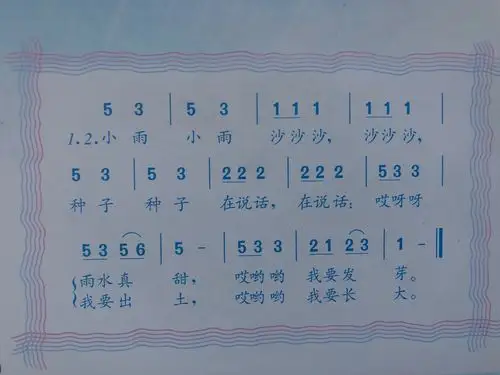 5 3 | 5 3 | 1 1 1 | 1 1 1 |
1.2.小 雨 小 雨 沙沙沙, 沙沙沙,
5 3 | 5 3 | 2 2 2 | 2 2 2 | 5 3 3
种 子 种 子 在说话, 在说话: 哎呀呀
5 3 5 6 | 5 - | 5 3 3 | 2 1 2 3 | 1 - ‖
雨水真 甜, 哎哟哟 我要发 芽。
我要出 土, 哎哟哟 我要长 大。